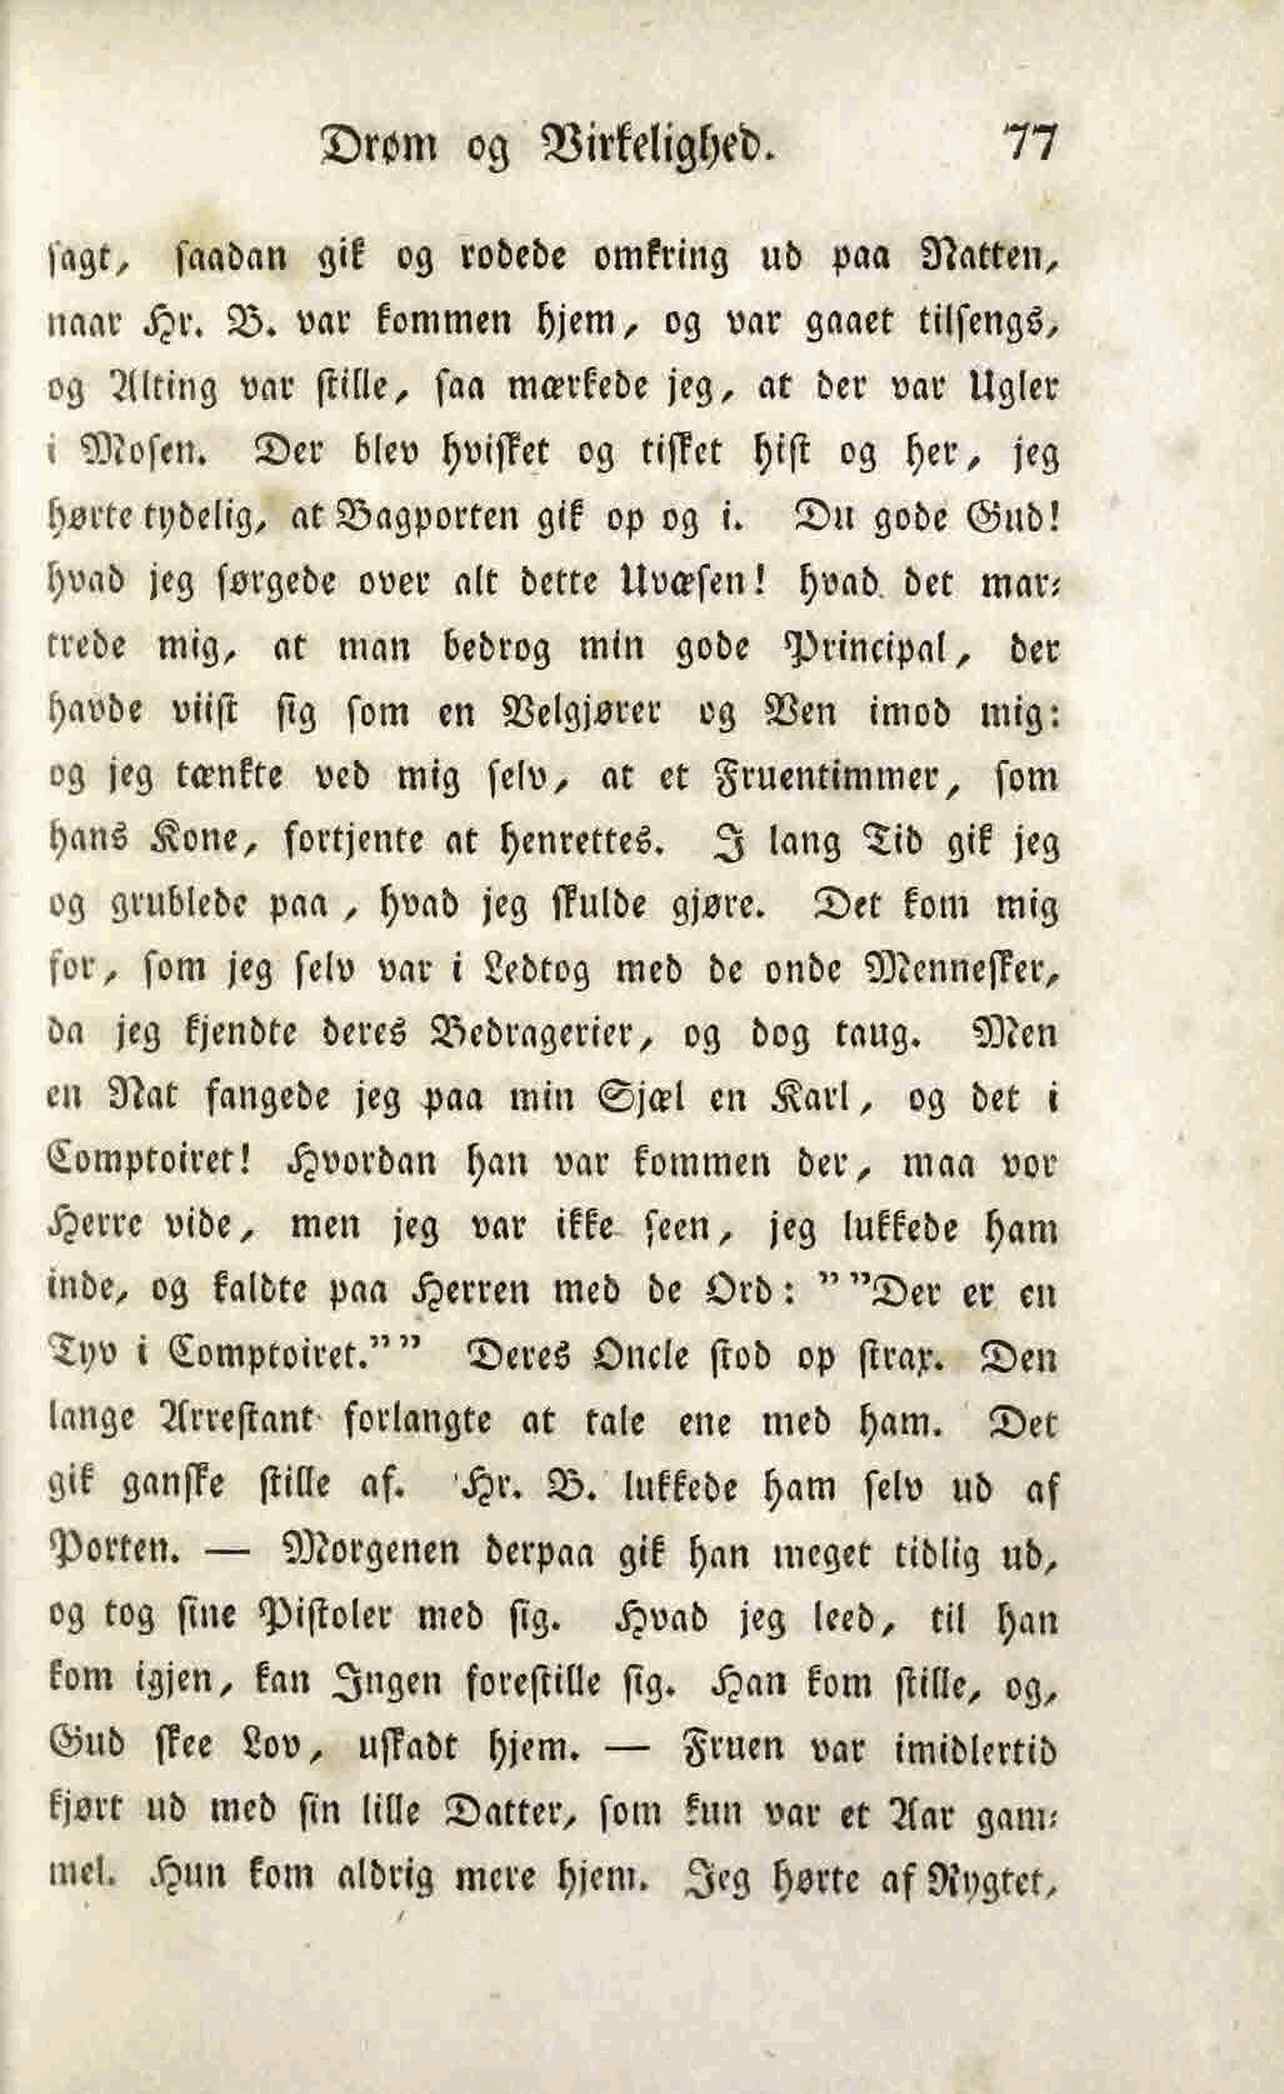 Drøm og Virkelighed. 77
sagt, saadan gik og rodede omkring ud paa Natten,
naar Hr. B. var kommen hjem, og var gaaet tilsengs,
og Alting var stille, saa mærkede jeg, at der var Ugler
i Mosen. Der blev hvisket og tisket hist og her, jeg
hørte tydelig, at Bagporten gik op og i. Du gode Gud!
hvad jeg sørgede over alt dette Uvæsen! hvad det mar-
trede mig, at man bedrog min gode Principal, der
havde viist sig som en Velgjører og Ven imod mig:
og jeg tænkte ved mig selv, at et Fruentimmer, som
hans Kone, fortjente at henrettes. I lang Tid gik jeg
og grublede paa, hvad jeg skulde gjøre. Det kom mig
for, som jeg selv var i Ledtog med de onde Mennesker,
da jeg kjendte deres Bedragerier, og dog taug. Men
en Nat fangede jeg paa min Sjæl en Karl, og det i
Comptoiret! Hvordan han var kommen der, maa vor
Herre vide, men jeg var ikke seen, jeg lukkede ham
inde, og kaldte paa Herren med de Ord: ””Der er en
Tyv i Comptoiret.”” Deres Oncle stod op strax. Den
lange Arrestant forlangte at tale ene med ham. Det
gik ganske stille af. Hr. B. lukkede ham selv ud af
Porten. — Morgenen derpaa gik han meget tidlig ud,
og tog sine Pistoler med sig. Hvad jeg leed, til han
kom igjen, kan Ingen forestille sig. Han kom stille, og,
Gud skee Lov, uskadt hjem. — Fruen var imidlertid
kjørt ud med sin lille Datter, som kun var et Aar gam-
mel. Hun kom aldrig mere hjem. Jeg hørte af Rygtet,